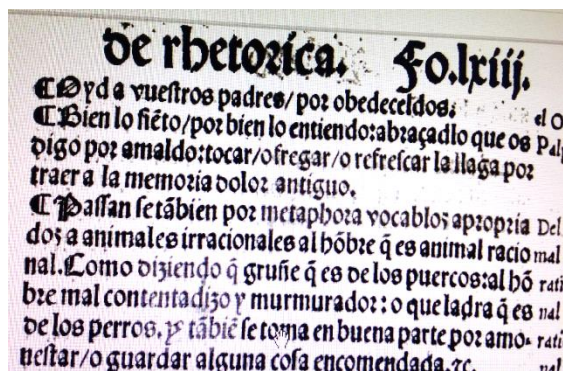 de rhetorica. Fo.lxiij.
¶Oyd a vuestros padres/por obedeceldos:
¶Bien lo siēto/por bien lo entiendo:abraçadlo que os
digo por amaldo:tocar/o fregar/o refrescar la llaga por
traer a la memoria dolor antiguo.
¶Passan se tābien por metaphora vocablos apropria
dos a animales irracionales al hōbre q̄ es animal racio
nal.Como diziendo q̄ gruñe q̄ es de los puercos:al hō
bre mal contentadizo y murmurador: o que ladra q̄ es
de los perros. y tābiē se toma en buena parte por amo-
nestar/o guardar alguna cosa encomendada.⁊c.
el O
Pal
Del
mal
rati
nal
rati
nal